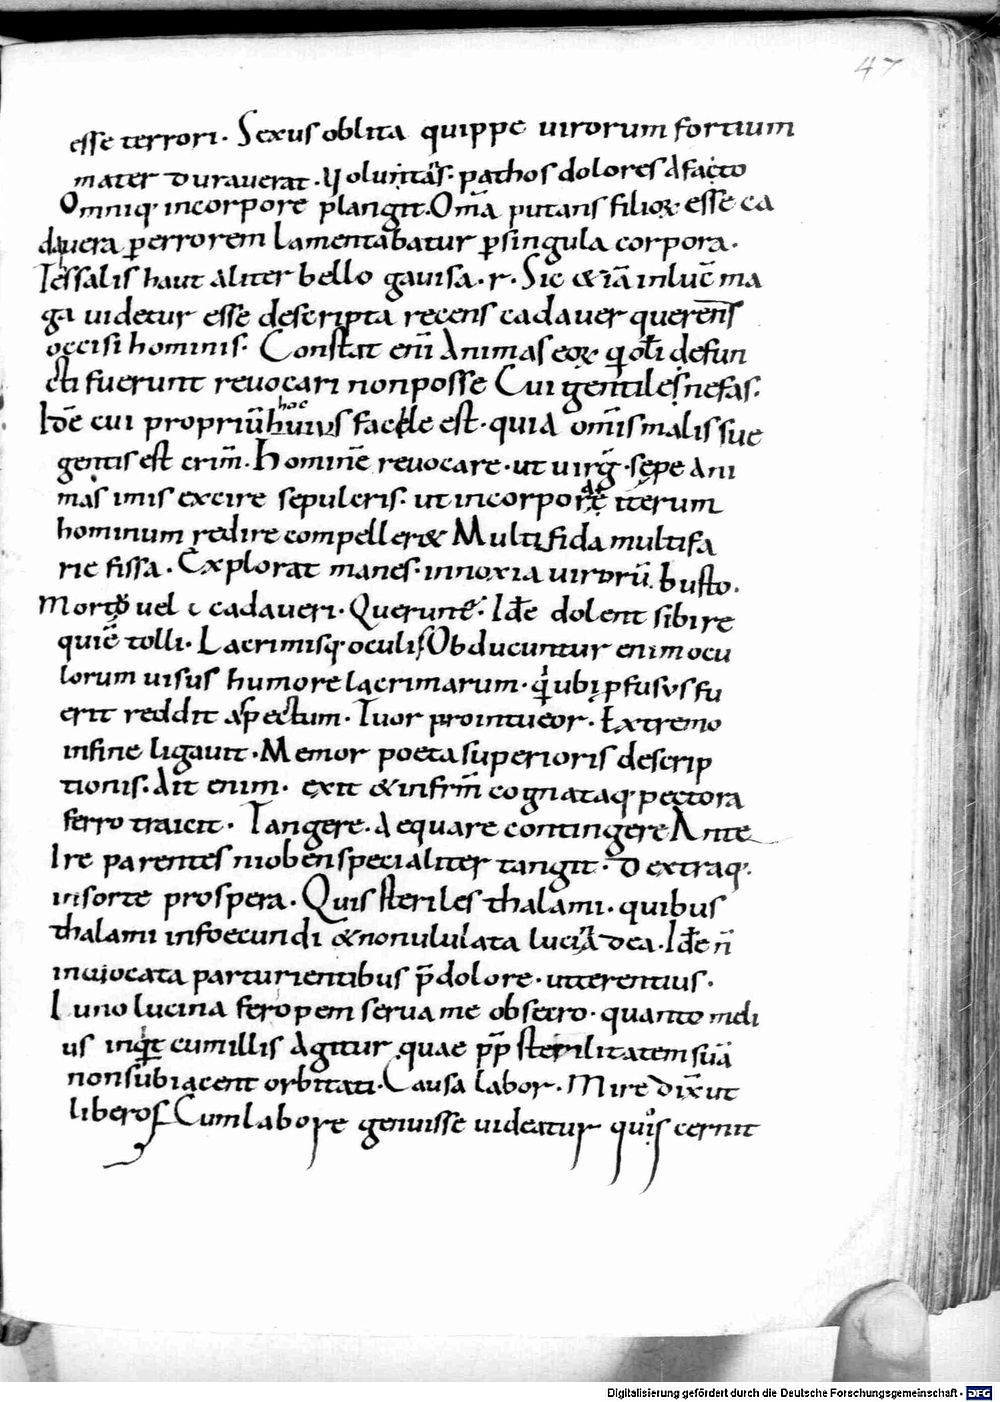 47
esse terrori. Sexus oblita quippe uirorum fortium
mater durauerat. Voluntas. pathos dolores a facto
Omniq; in corpore plangit. Om̄a putans filioꝝ esse ca
dauera ꝑ errorem lamentabatur ꝑ singula corpora.
Tessalis haut aliter bello gauisa. r. Sic & iā in luc̄ ma
ga uidetur esse descripta recens cadauer querens
occisi hominis. Constat eni̅ Animas eoꝝ defun
cti fuerunt reuocari non posse Cui gentiles nefas.
Idē cui propriū hoc huius facele est. quia om̄is malis sue
gentis est crim̅. Hominē reuocare. ut uirg̅. sępe ani
mas imis excire sepulcris. ut in corpora iterum
hominum redire compeller& Multifida multifa
rie fissa. Explorat manes. innoxia uirorū busto.
uel cadaueri. Querunt̅. Idē dolent sibi re
quiē tolli. Lacrimisq; oculis Obducuntur enim ocu
lorum uisus humore lacrimarum. ubi ꝓfusus fu
erit reddit aspectum. Tuor pro intueor. Extremo
in fine ligauit. Memor poeta superioris descrip
tionis. Ait enim. exit & in frm̅ cognataq; pectora
ferro traicit. Tangere. Aequare contingere Ante
Ire parentes nioben specialiter tangit. Dextraq;.
in sorte prospera. Quis steriles thalami. quibus
thalami infoecundi & non ululata lucina dea. Idē n̅
inuocata parturientibus p̄ dolore. ut terentius.
Iuno lucina fer opem serua me obsecro. quanto meli
us inquit cum illis agitur quae pp̄ sterilitatem suā
non subiacent orbitati. Causa labor. Mire dixit ut
liberos Cum labore genuisse uideatur quis cernit
Digitalisierung gefördert durch die Deutsche Forschungsgemeinschaft - DFG